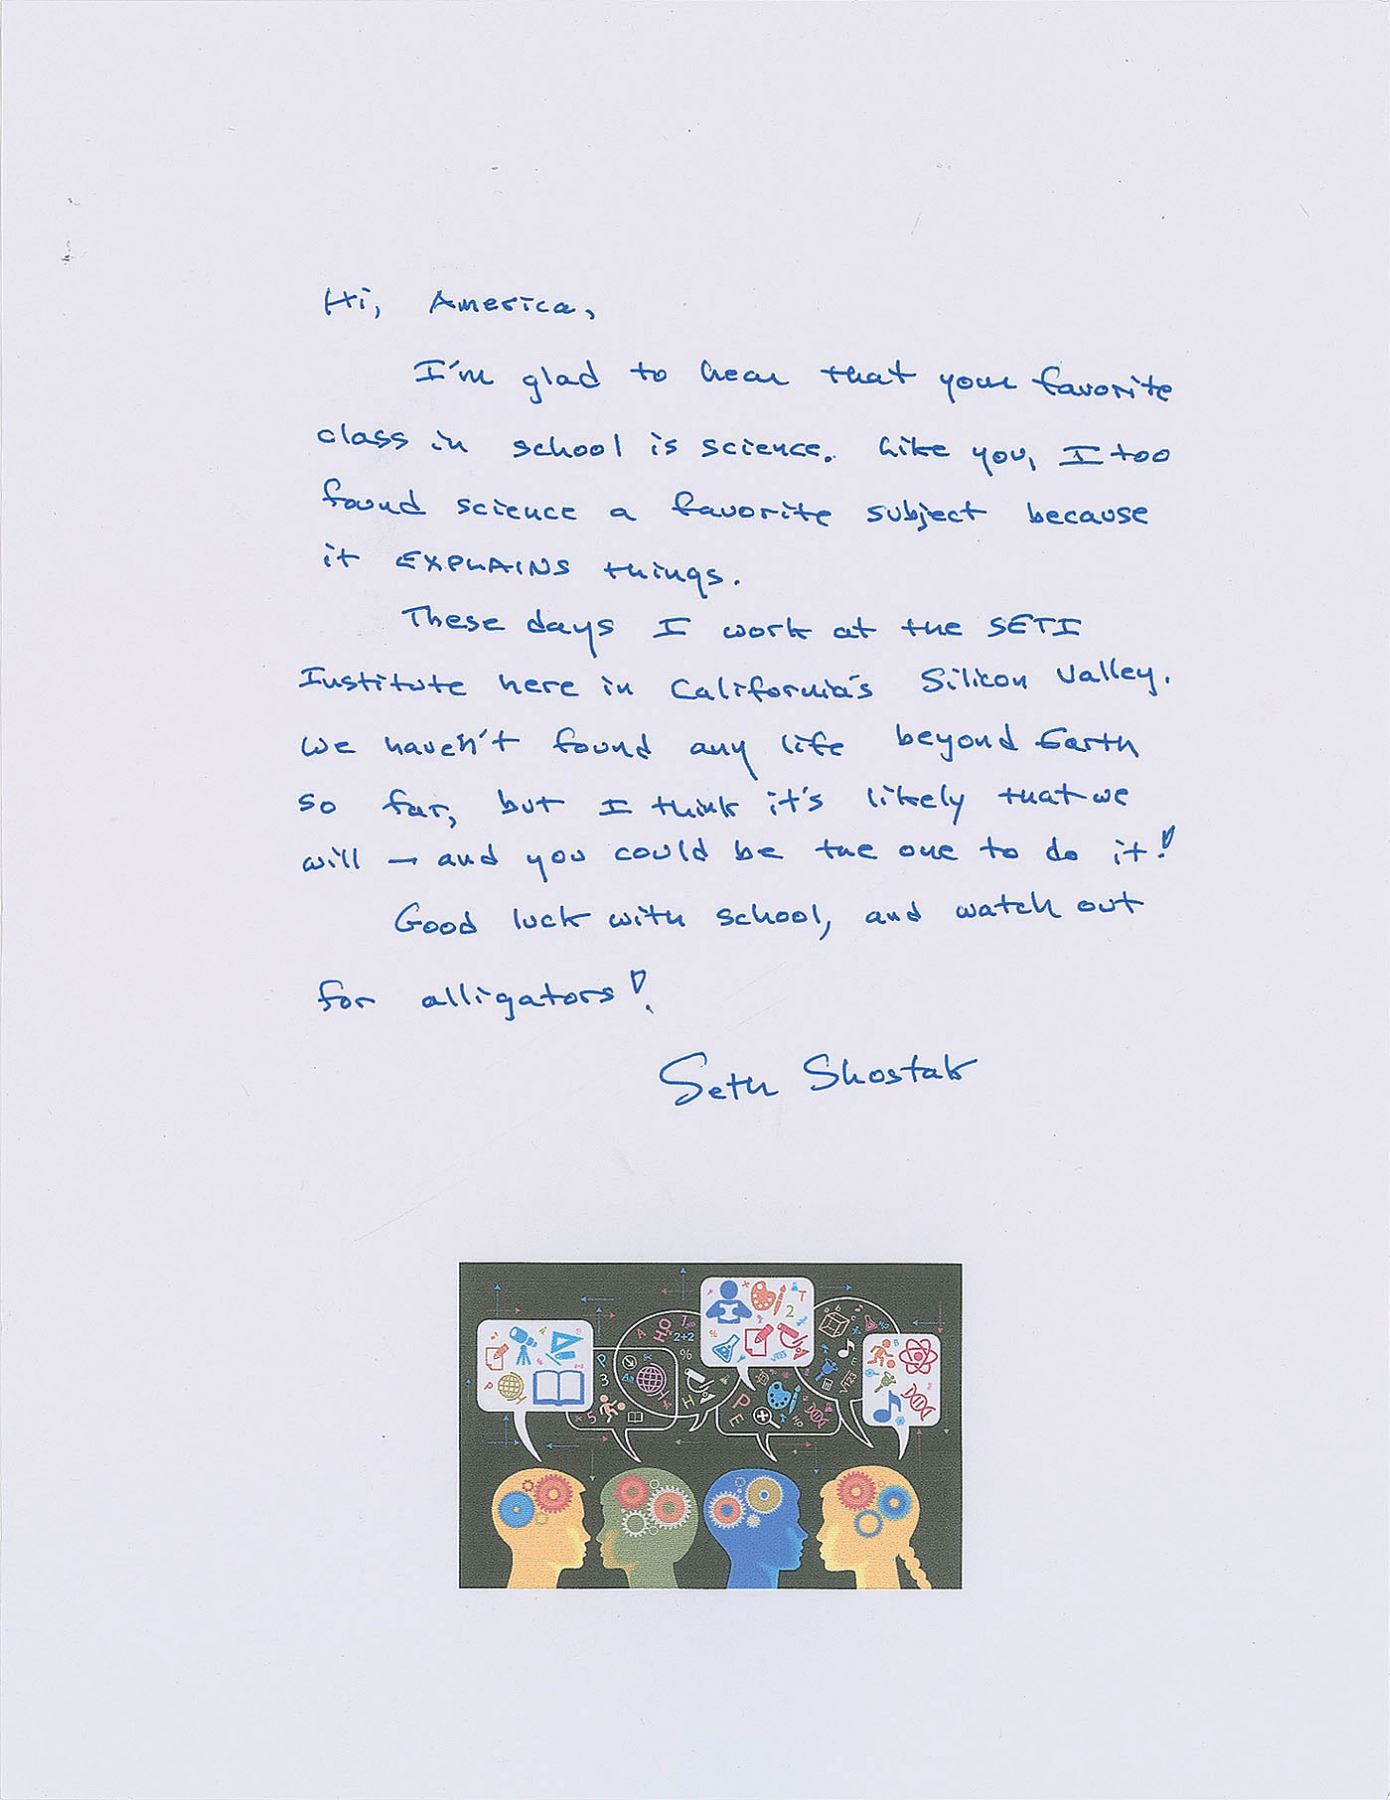 Hi, America,
I'm glad to hear that your favorite
class in school is science. Like you, I too
found science a favorite subject because
it EXPLAINS things.
These days I work at the SETI
Institute here in California's Silicon Valley.
We haven't found any life beyond Earth
so far, but I think it's likely that we
will — and you could be the one to do it!
Good luck with school, and watch out
for alligators!
Seth Shostak
H2O
2+2
%
2
T
P
3
5
H
P
E
√123